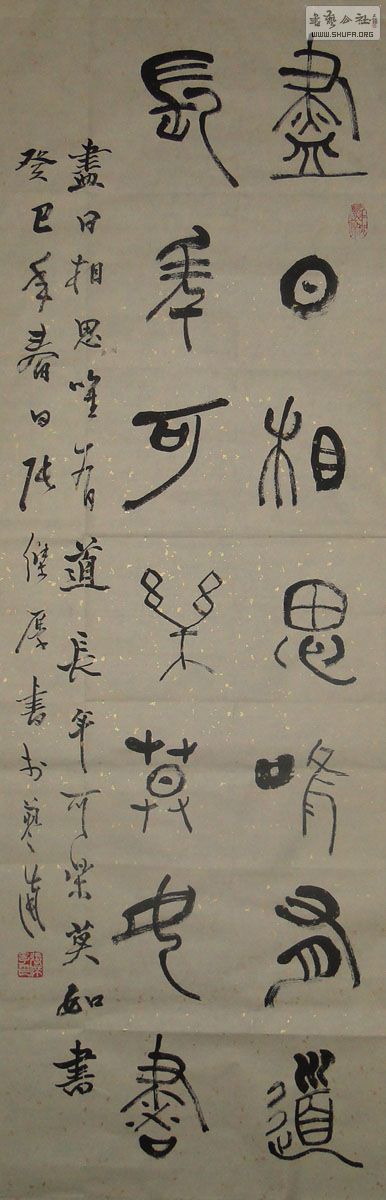 盡日相思唯有道
長年可樂莫如書
盡日相思唯有道長年可樂莫如書
癸巳年春日張傑厚書於藝
WWW.SHUFA.ORG